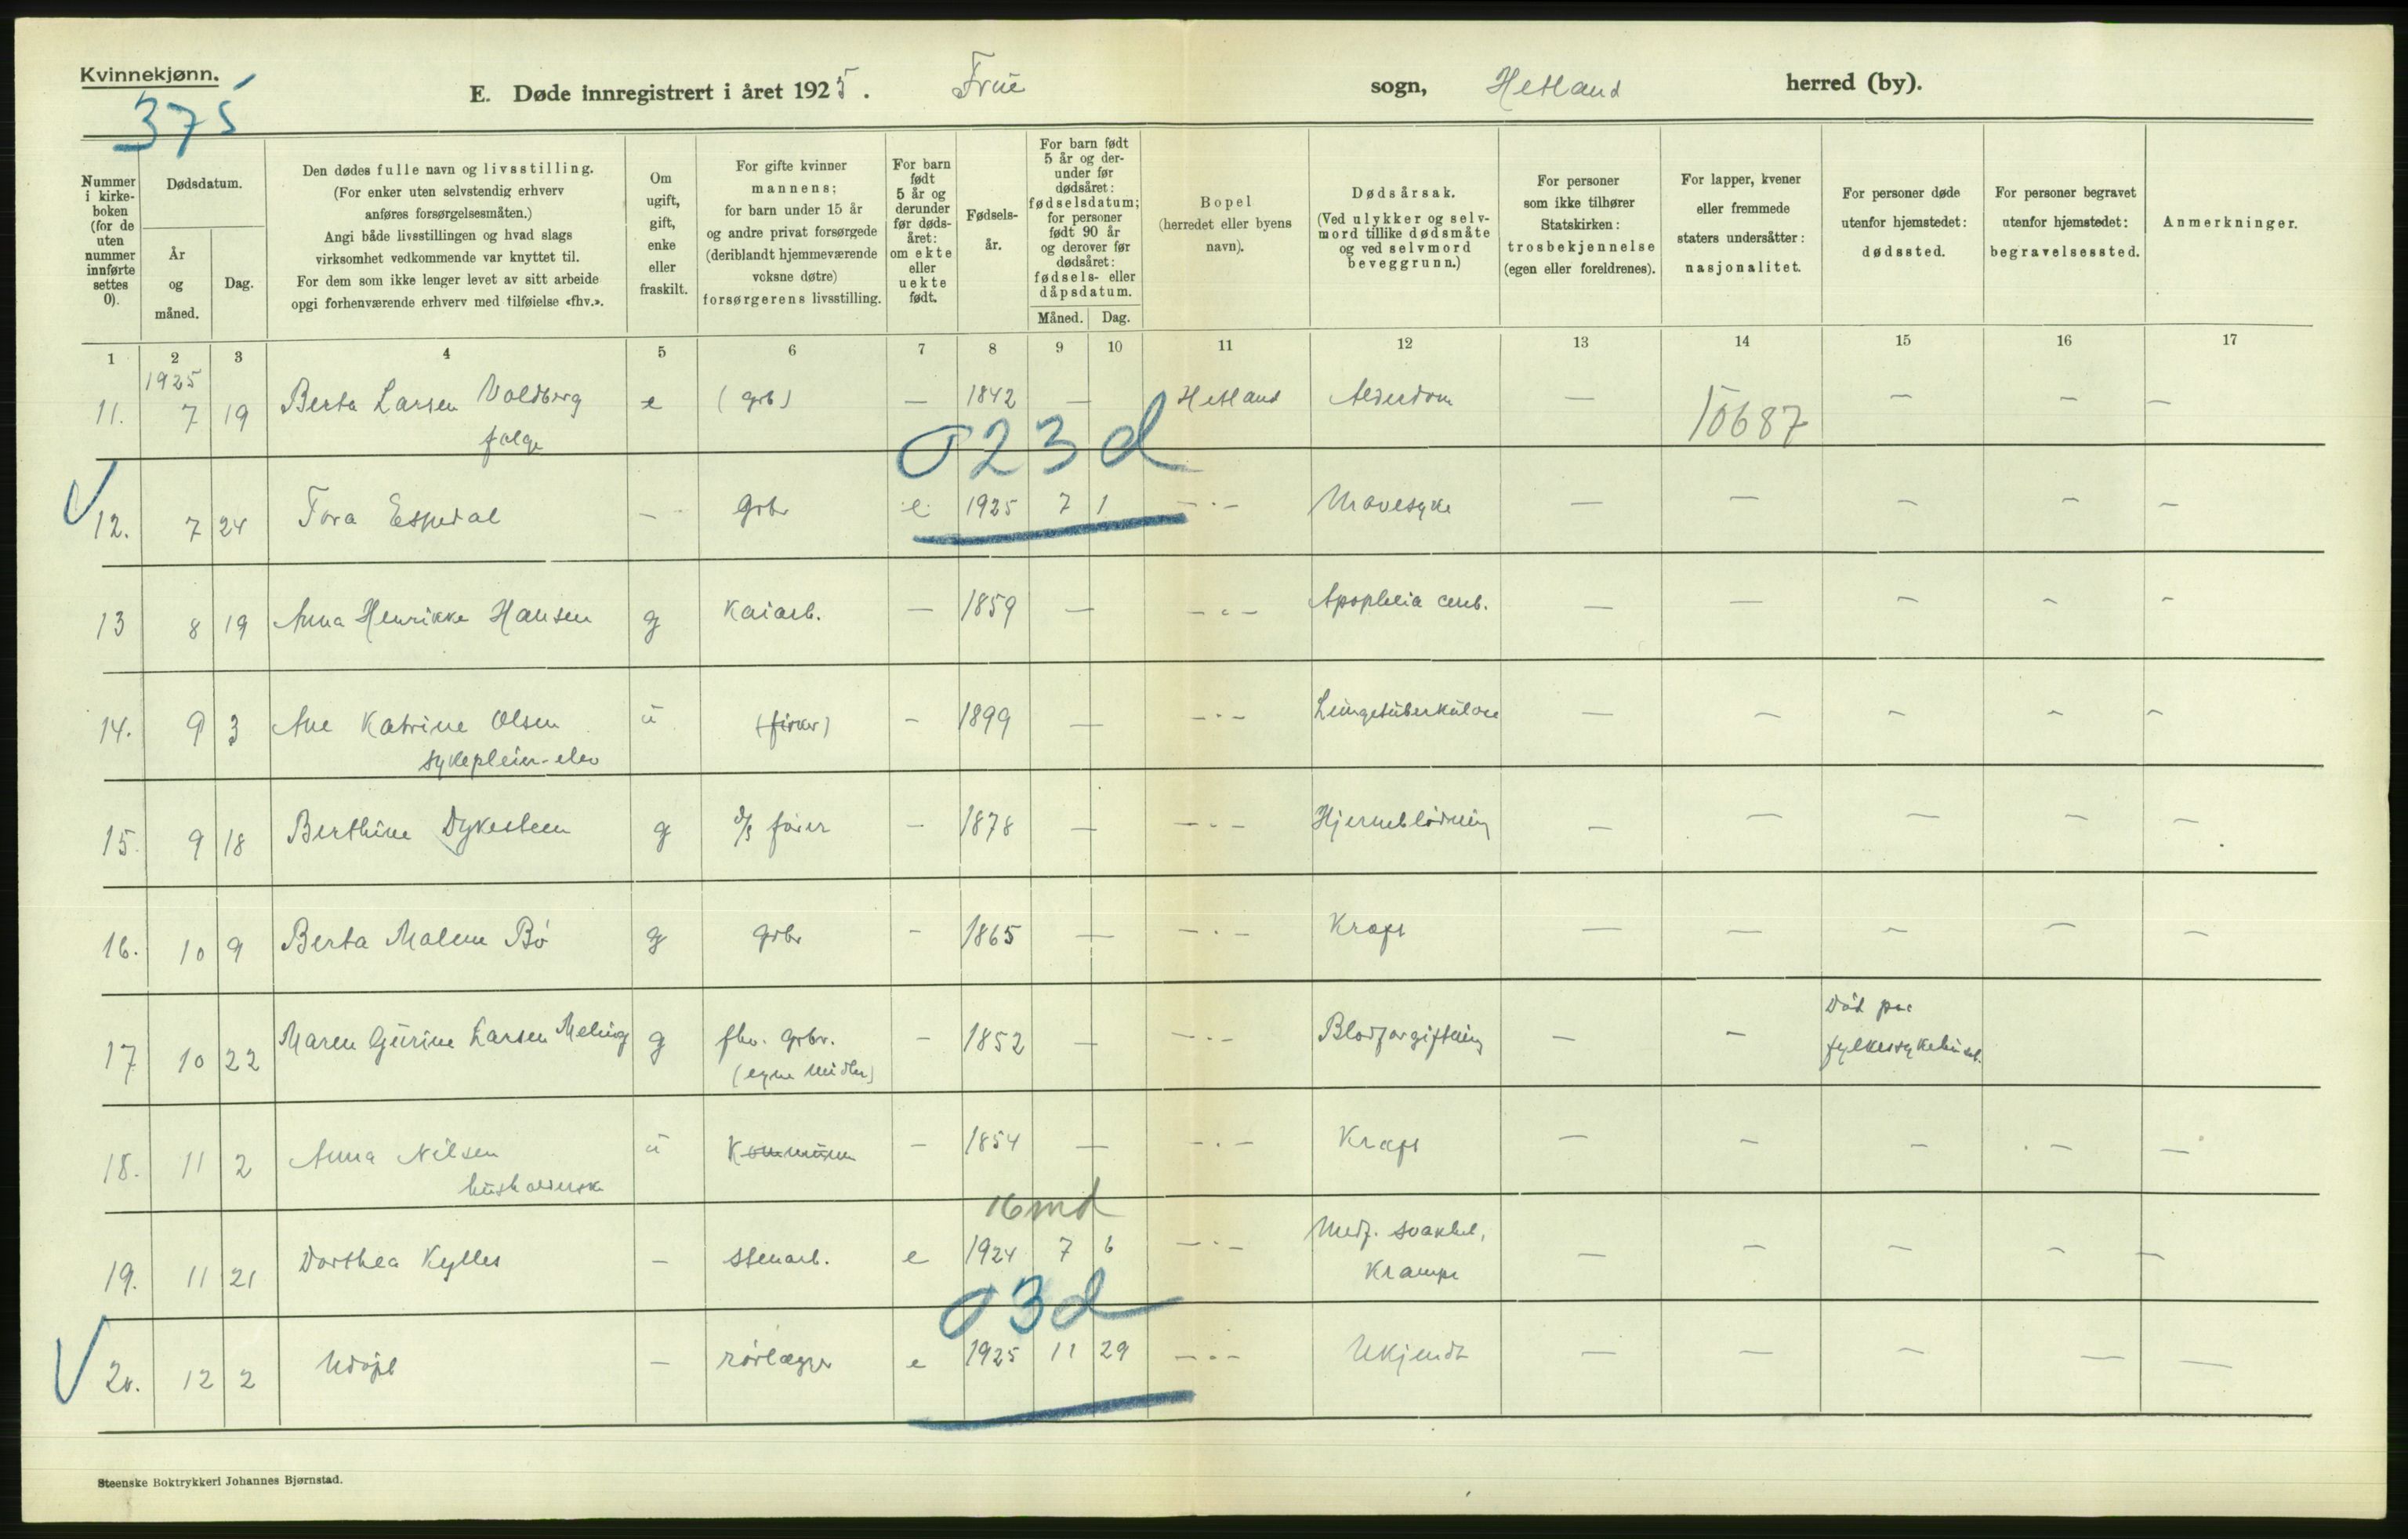 Kvinnekjønn.
375
E. Døde innregistrert i året 1925. Frue sogn, Hetland herred (by).
Nummer i kirke- boken (for de uten nummer innførte settes 0).
Dødsdatum.
År og måned.
Dag.
Den dødes fulle navn og livsstilling.
(For enker uten selvstendig erhverv
anføres forsørgelsesmåten.)
Angi både livsstillingen og hvad slags
virksomhet vedkommende var knyttet til.
For dem som ikke lenger levet av sitt arbeide
opgi forhenværende erhverv med tilføielse «fhv.».
Om ugift, gift, enke eller fraskilt.
For gifte kvinner
mannens;
for barn under 15 år
og andre privat forsørgede
(deriblandt hjemmeværende
voksne døtre)
forsørgerens livsstilling.
For barn født 5 år og derunder før døds- året: om ekte eller uekte født.
Fødsels- år.
For barn født 5 år og der- under før dødsåret: fødselsdatum; for personer født 90 år og derover før dødsåret: fødsels- eller dåpsdatum.
Måned. Dag.
Bopel
(herredet eller byens
navn).
Dødsårsak.
(Ved ulykker og selv-
mord tillike dødsmåte
og ved selvmord
beveggrunn.)
For personer
som ikke tilhører
Statskirken:
trosbekjennelse
(egen eller foreldrenes).
For lapper, kvener
eller fremmede
staters undersåtter:
nasjonalitet.
For personer døde
utenfor hjemstedet:
dødssted.
For personer begravet
utenfor hjemstedet:
begravelsessted.
Anmerkninger.
1 2 3 4 5 6 7 8 9 10 11 12 13 14 15 16 17
1925
11. 7 19 Berta Larsen Voldberg e (grb) — 1842 — Hetland Alderdom — — — —
folge
10687
023d
12. 7 24 Tora Espedal — grbr e. 1925 7 1 —"— Mavesyke — — — — —
13 8 19 Anna Henrikke Hansen g Kaiarb. — 1859 — —"— Apoplexia cereb. — — — — —
14. 9 3 Ane Katrine Olsen u (fisker) — 1899 — —"— Lungetuberkulose — — — — —
sykepleier-elev
15. 9 18 Berthine Dykesteen g D/S fører — 1878 — —"— Hjerneblødning — — — — —
16. 10 9 Berta Malene Bø g grbr — 1865 — —"— Kræft — — — — —
17 10 22 Maren Gurine Larsen Meling g fhv. grbr. — 1852 — —"— Blodforgiftning — — Død paa
(egne midler) fylkessykehuset.
18. 11 2 Anna Nilsen u Kommun — 1854 — —"— Kræft — — — — —
husholderske
16 md
19. 11 21 Dorthea Kylles — stenarb. e 1924 7 6 —"— Medf. svakhet, — — — — —
Krampe
03d
20. 12 2 Udøpt — rørlægger e 1925 11 29 —"— Ukjendt — — — — —
Steenske Boktrykkeri Johannes Bjørnstad.